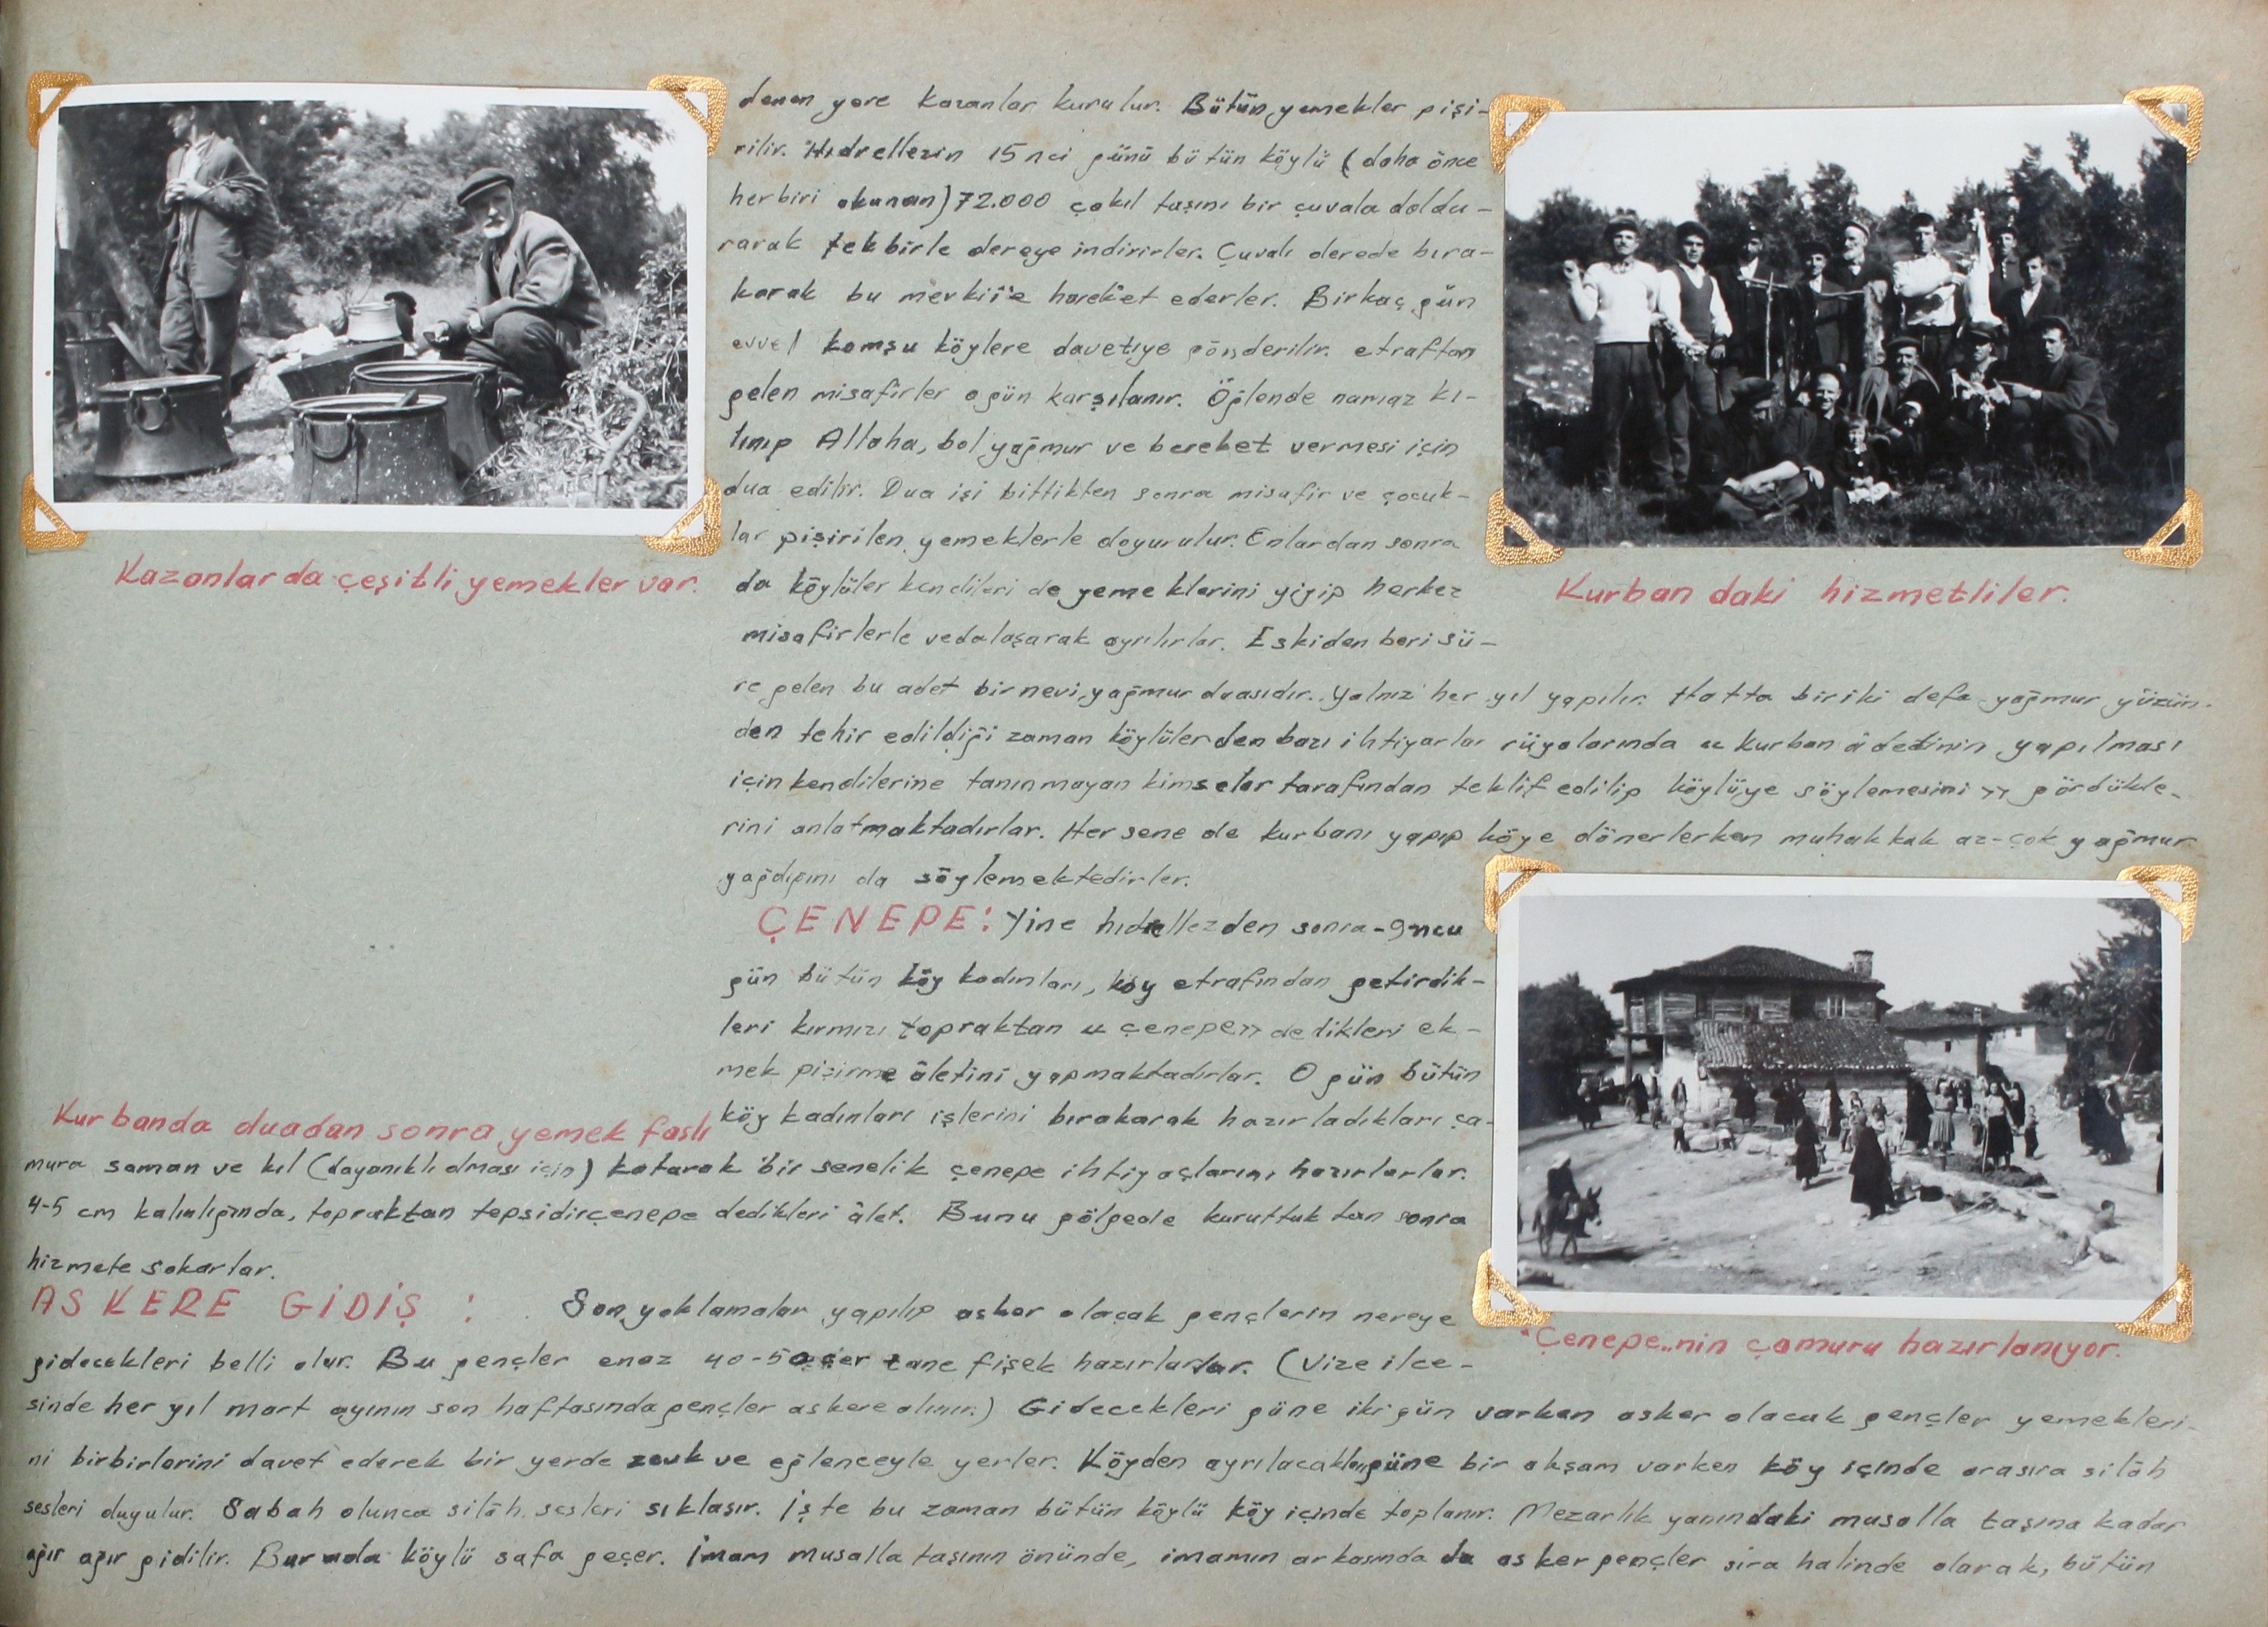 denen yere kazanlar kurulur. Bütün yemekler pişi-
rilir. Hıdrellezin 15 nci günü bütün köylü (daha önce
herbiri okunan) 72.000 çakıl taşını bir çuvala doldu-
rarak tekbirle dereye indirirler. Çuvalı derede bıra-
karak bu mevkiie hareket ederler. Birkaç gün
evvel komşu köylere davetiye gönderilir. etraftan
gelen misafirler o gün karşılanır. Öğlende namaz kı-
lınıp Allaha, bol yağmur ve bereket vermesi için
dua edilir. Dua işi bittikten sonra misafir ve çocuk-
lar pişirilen yemeklerle doyurulur. Onlardan sonra
da köylüler kendileri de yemeklerini yiyip herkez
misafirlerle vedalaşarak ayrılırlar. Eskiden beri sü-
re gelen bu adet birnevi yağmur duasıdır. Yalnız her yıl yapılır. Hatta bir iki defa yağmur yüzün-
den tehir edildiği zaman köylülerden bazı ihtiyarlar rüyalarında « kurban âdetinin yapılması
için kendilerine tanınmayan kimseler tarafından teklif edilip köylüye söylemesini » gördükle-
rini anlatmaktadırlar. Her sene de kurbanı yapıp köye dönerlerken muhakkak az-çok yağmur
yağdığını da söylemektedirler.
Kazanlarda çeşitli yemekler var.
Kurbandaki hizmetliler.
ÇENEPE: Yine hıdrellezden sonra - 9ncu
gün bütün köy kadınları, köy etrafından getirdik-
leri kırmızı topraktan « çenepe » dedikleri ek-
mek pişirme âletini yapmaktadırlar. O gün bütün
köy kadınları işlerini bırakarak hazırladıkları ça-
Kurbanda duadan sonra yemek faslı
mura saman ve kıl (dayanıklı olması için) katarak bir senelik çenepe ihtiyaçlarını hazırlarlar.
4-5 cm kalınlığında, topraktan tepsidir çenepe dedikleri âlet. Bunu gölgede kuruttuktan sonra
hizmete sokarlar.
"Çenepe"nin çamuru hazırlanıyor.
ASKERE GİDİŞ : Son yoklamalar yapılıp asker olacak gençlerin nereye
gidecekleri belli olur. Bu gençler enaz 40-50 şer tane fişek hazırlarlar. (Vize ilçe-
sinde her yıl mart ayının son haftasında gençler askere alınır.) Gidecekleri güne iki gün varken asker olacak gençler yemekleri-
ni birbirlerini davet ederek bir yerde zevk ve eğlenceyle yerler. Köyden ayrılacakları güne bir akşam varken köy içinde arasıra silâh
sesleri duyulur. Sabah olunca silâh sesleri sıklaşır. İşte bu zaman bütün köylü köy içinde toplanır. Mezarlık yanındaki musalla taşına kadar
ağır ağır gidilir. Burada köylü safa geçer. İmam musalla taşının önünde, imamın arkasında da asker gençler sıra halinde olarak, bütün